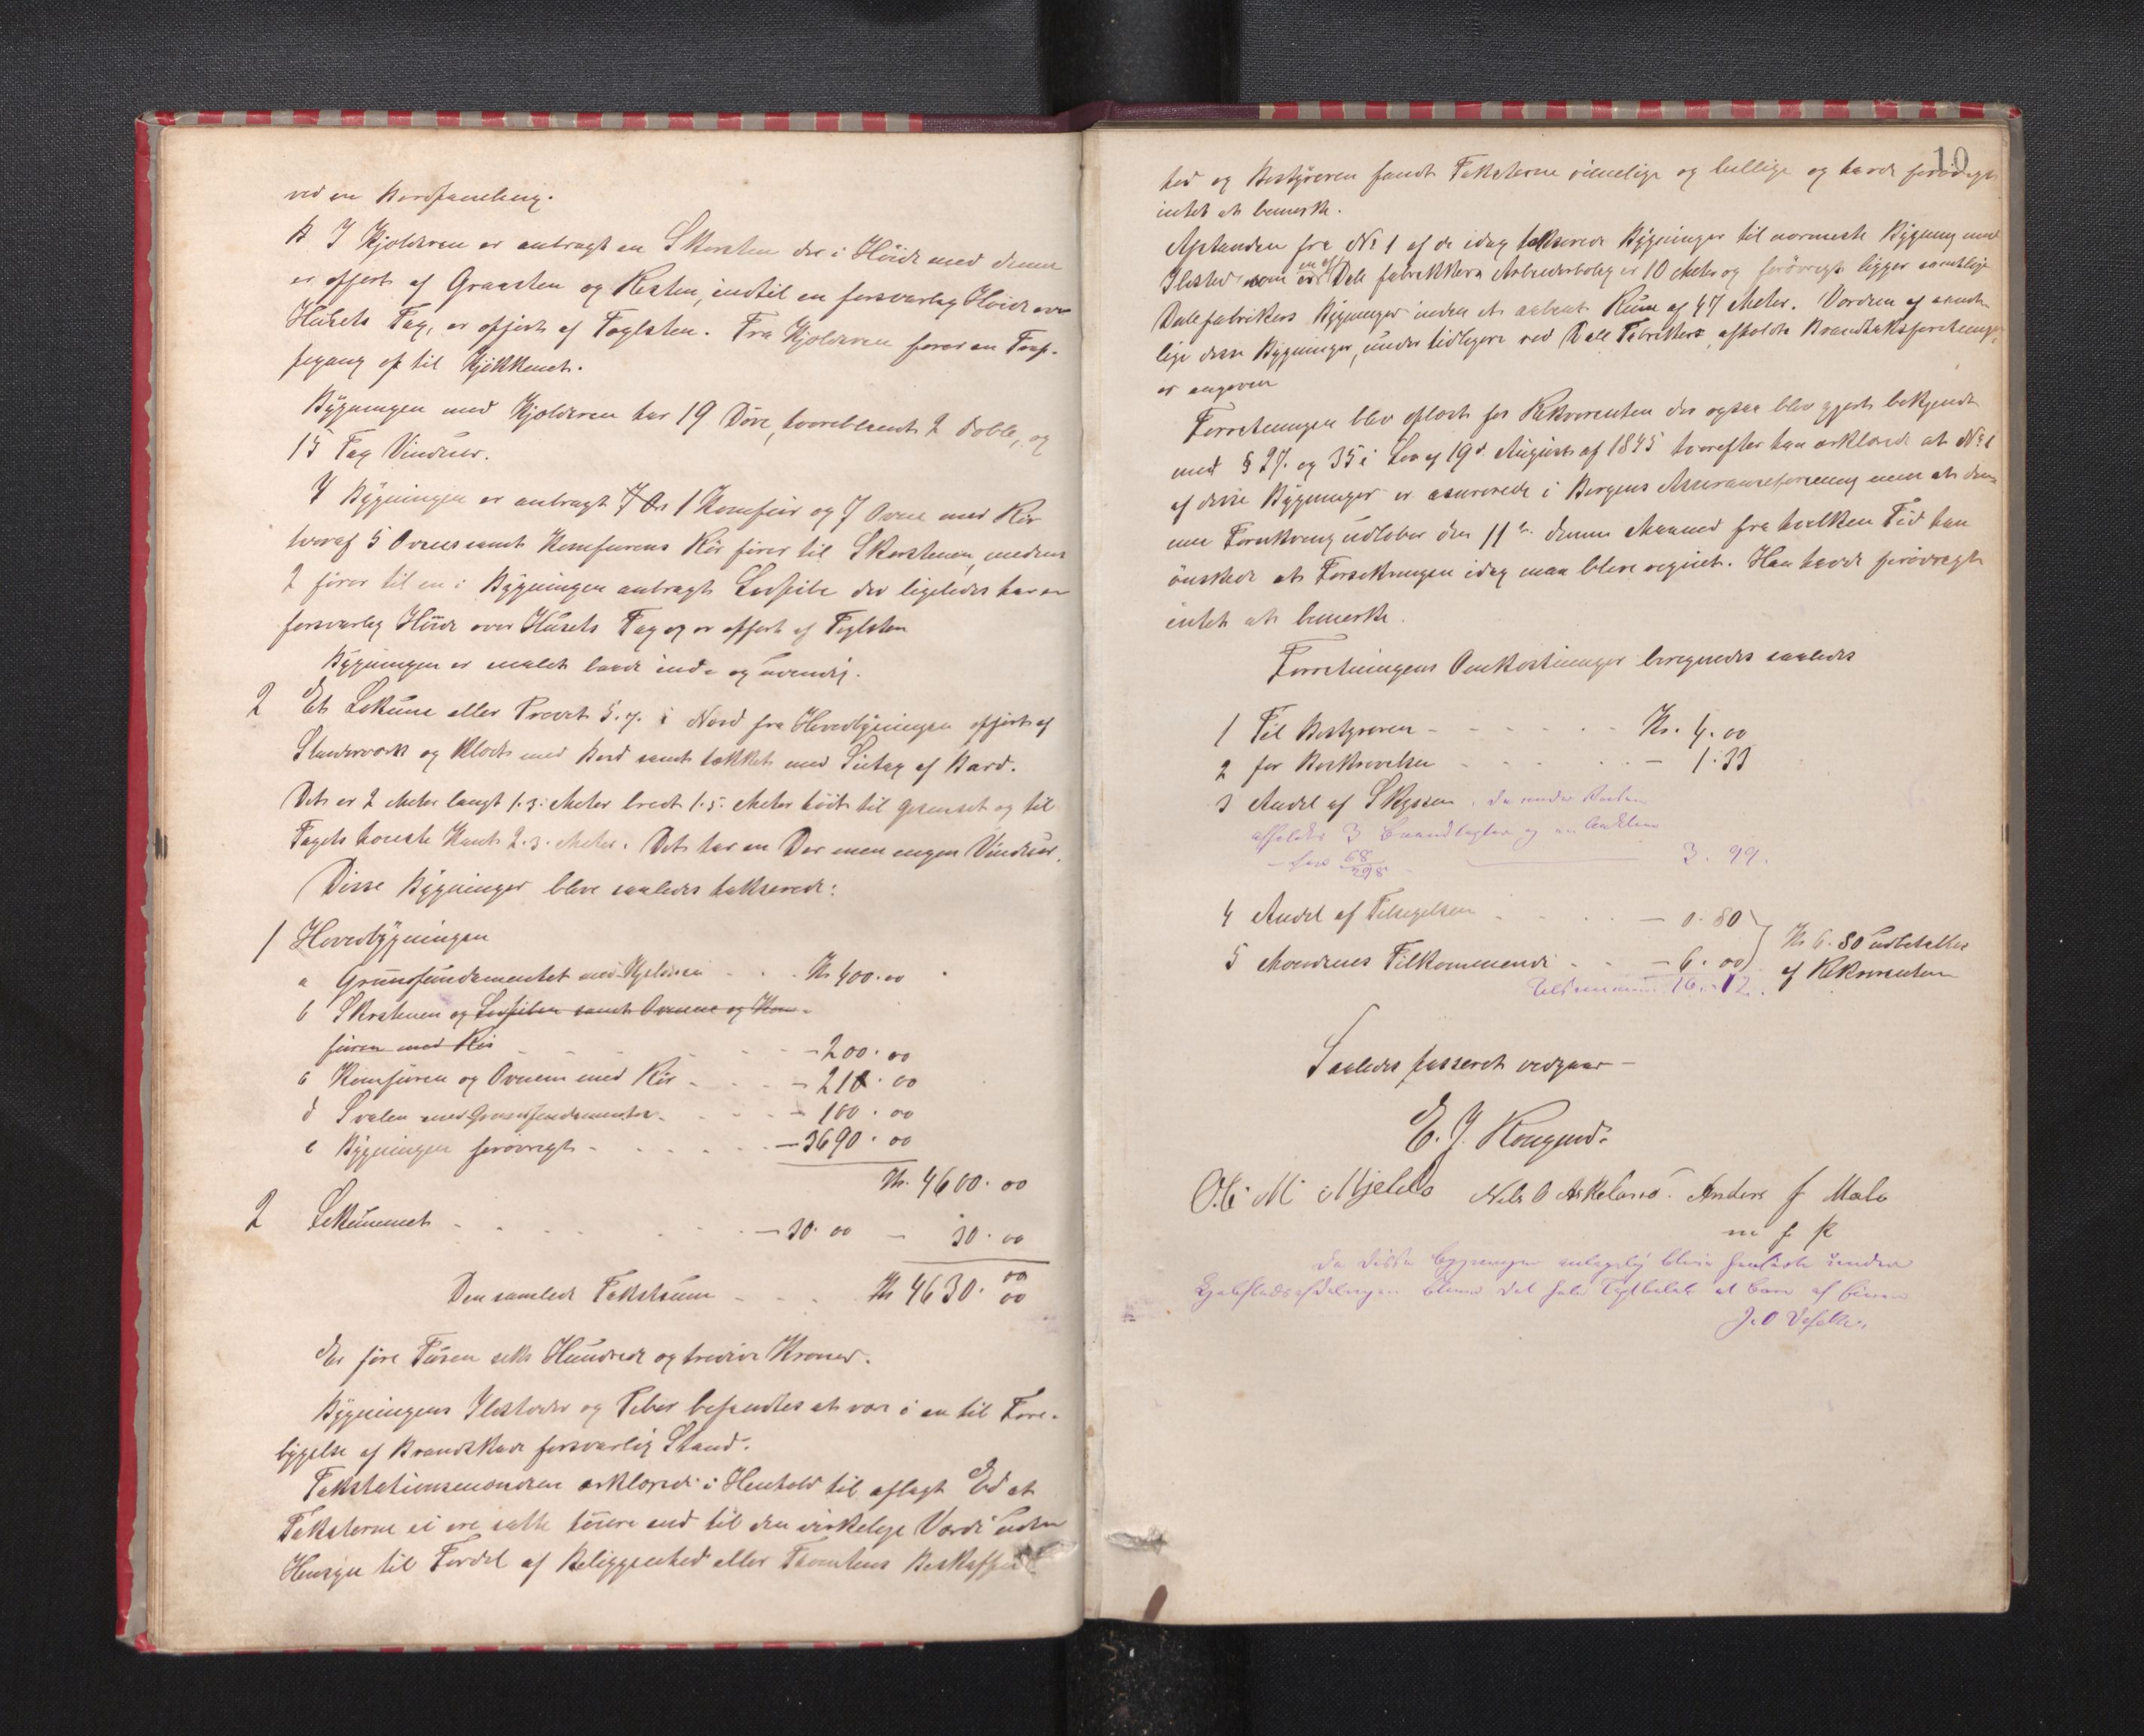 ved en Bordpaneling.
B I Kjolderen er anbragt en Skorsten der i Høide med denne
er opført af Graasten og Resten, indtil en forsvarlig Høide over
Husets Tag, er opført af Teglsten. Fra Kjolderen fører en Trap-
pegang op til Kjøkkenet.
Bygningen med Kjolderen har 19 Døre, hvoriblandt 2 doble, og
15 Fag Vinduer.
I Bygningen er anbragt 1 Komfur og 7 Ovne med Rør
hvoraf 5 Ovne samt Komfurens Rør fører til Skorstenen, medens
2 fører til en i Bygningen anbragt Ludpibe der ligeledes har en
forsvarlig Høide over Husets Tag og er opført af Teglsten
Bygningen er malet baade ind- og udvendig.
2 Et Lokum eller Privet S. ø. i Nord fra Hovedbygningen opført af
Stænderværk og klædt med Bord samt tækket med Sutag af Bord.
Det er 2 Meter langt 1.3. Meter bredt 1.5. Meter høit til Gesimset og til
Tagets høieste Kant 2.3. Meter. Det har en Dør men ingen Vinduer.
Disse Bygninger bleve saaledes takserede:
1 Hovedbygningen
a Grundfundamentet med Kjelderen - - - Kr 400.00
b Skorstenen og Ludpiben samt Ovnene og Kom-
furen med Rør - - - 200.00
c Komfuren og Ovnene med Rør - - - 210.00
d Svalen med Grundfundamenter - - - 100.00
e Bygningen forøvrigt - - - 3690.00
Kr. 4600.00
2 Lokummet - - - 30.00 - 30.00
Den samlede Takstsum - - - Kr 4630.00
00
Er fire Tusen seks Hundrede og tredive Kroner.
Bygningens Ildsteder og Piber befandtes at være i en til Fore-
byggelse af Brandskade forsvarlig Stand.
Takstationsmændene erklærede i Henhold til aflagt Ed at
Taksterne ei ere satte høiere end til den virkelige Værdi uden
Hensyn til Fordel af Beliggenhed eller Tomtens Beskaffen-
10
hed og Bestyreren fandt Taksterne rimelige og billige og havde forøvrigt
intet at bemerke.
Afstanden fra No 1 af de idag takserede Bygninger til nærmeste Bygning med
en af
Ildsted som er Dale fabrikkers Arbeiderbolig er 10 Meter og forøvrigt ligger samtlige
Dalefabrikers Bygninger inden et aabent Rum af 47 Meter. Værdien af samt-
lige disse Bygninger, under tidligere ved Dale Fabrikker afholdte Brandtaksforretninger,
er angiven
Forretningen blev oplæst for Rekvirenten der ogsaa blev gjort bekjendt
med § 27. og 35 i Lov af 19d August af 1845 hvorefter han erklærede at No 1
af disse Bygninger er assurerede i Bergens Assuranceforening men at den-
ne Forsikring udløber den 11te denne Maaned fra hvilken Tid han
ønskede at Forsikringen idag maa blive regnet. Han havde forøvrigt
intet at bemerke.
Forretningens Omkostninger beregnedes saaledes
1 Til Bestyreren - - - Kr. 4.00
2 for Beskrivelsen - - - 1.33
3 Andel af Skydsen, da under Reisen
afholdes 3 Brandtaxter og en Auktion
- for 68/298 3.99.
4 Andel af Tilsigelsen - - - 0.80
5 Mændenes Tilkommende - - - 6.00
Kr 6.80 udbetaltes
af Rekvirenten
Tilsammen 16.12.
Saaledes passeret vedgaar -
E. J. Kougund.
O. M. Mjelde Nils O Askeland. Anders J Male
m f P
Da disse Bygninger
J. O Dahle.